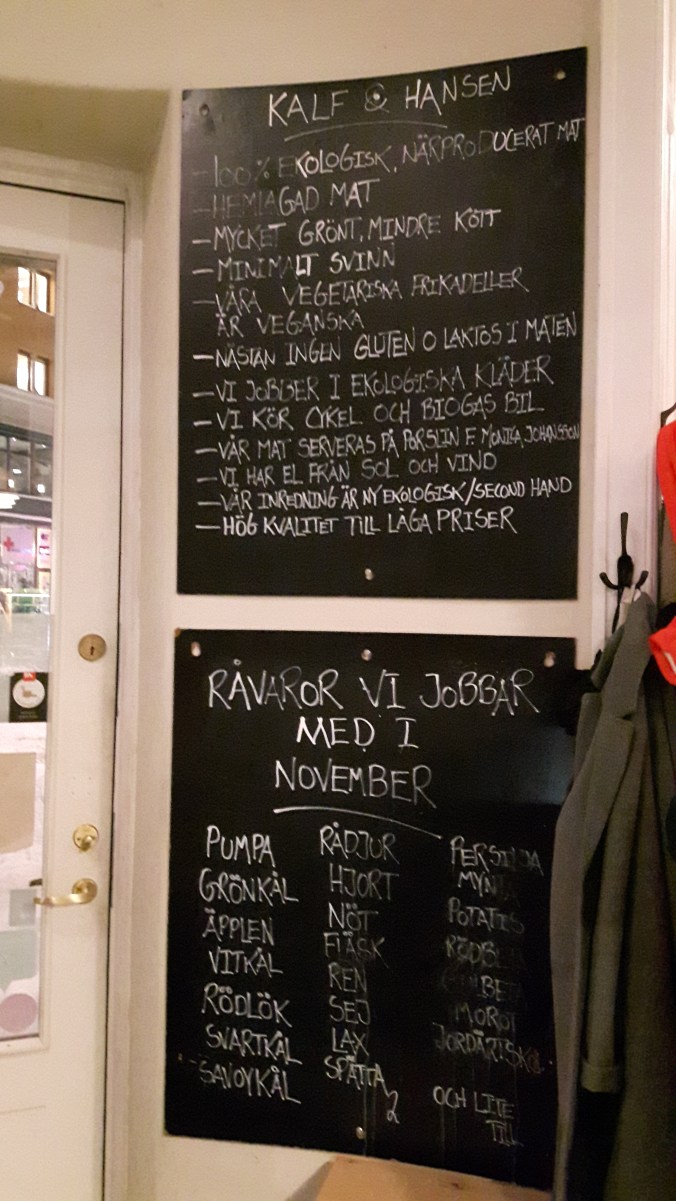 KALF & HANSEN
- 100% EKOLOGISK, NÄRPRODUCERAT MAT
- HEMLAGAD MAT
- MYCKET GRÖNT, MINDRE KÖTT
- MINIMALT SVINN
- VÅRA VEGETARISKA FRIKADELLER
ÄR VEGANSKA
- NÄSTAN INGEN GLUTEN O LAKTOS I MATEN
- VI JOBBER I EKOLOGISKA KLÄDER
- VI KÖR CYKEL OCH BIOGAS BIL
- VÅR MAT SERVERAS PÅ PORSLIN F. MONIKA JOHANSSON
- VI HAR EL FRÅN SOL OCH VIND
- VÅR INREDNING ÄR NY EKOLOGISK/SECOND HAND
- HÖG KVALITET TILL LÅGA PRISER
RÅVAROR VI JOBBAR
MED I
NOVEMBER
PUMPA
GRÖNKÅL
ÄPPLEN
VITKÅL
RÖDLÖK
SVARTKÅL
SAVOYKÅL
RÅDJUR
HJORT
NÖT
FLÄSK
REN
SEJ
LAX
SPÄTTA
PERSILJA
MYNTA
POTATIS
RÖDBETA
GULBETA
MOROT
JORDÄRTSKOC
OCH LITE
TILL